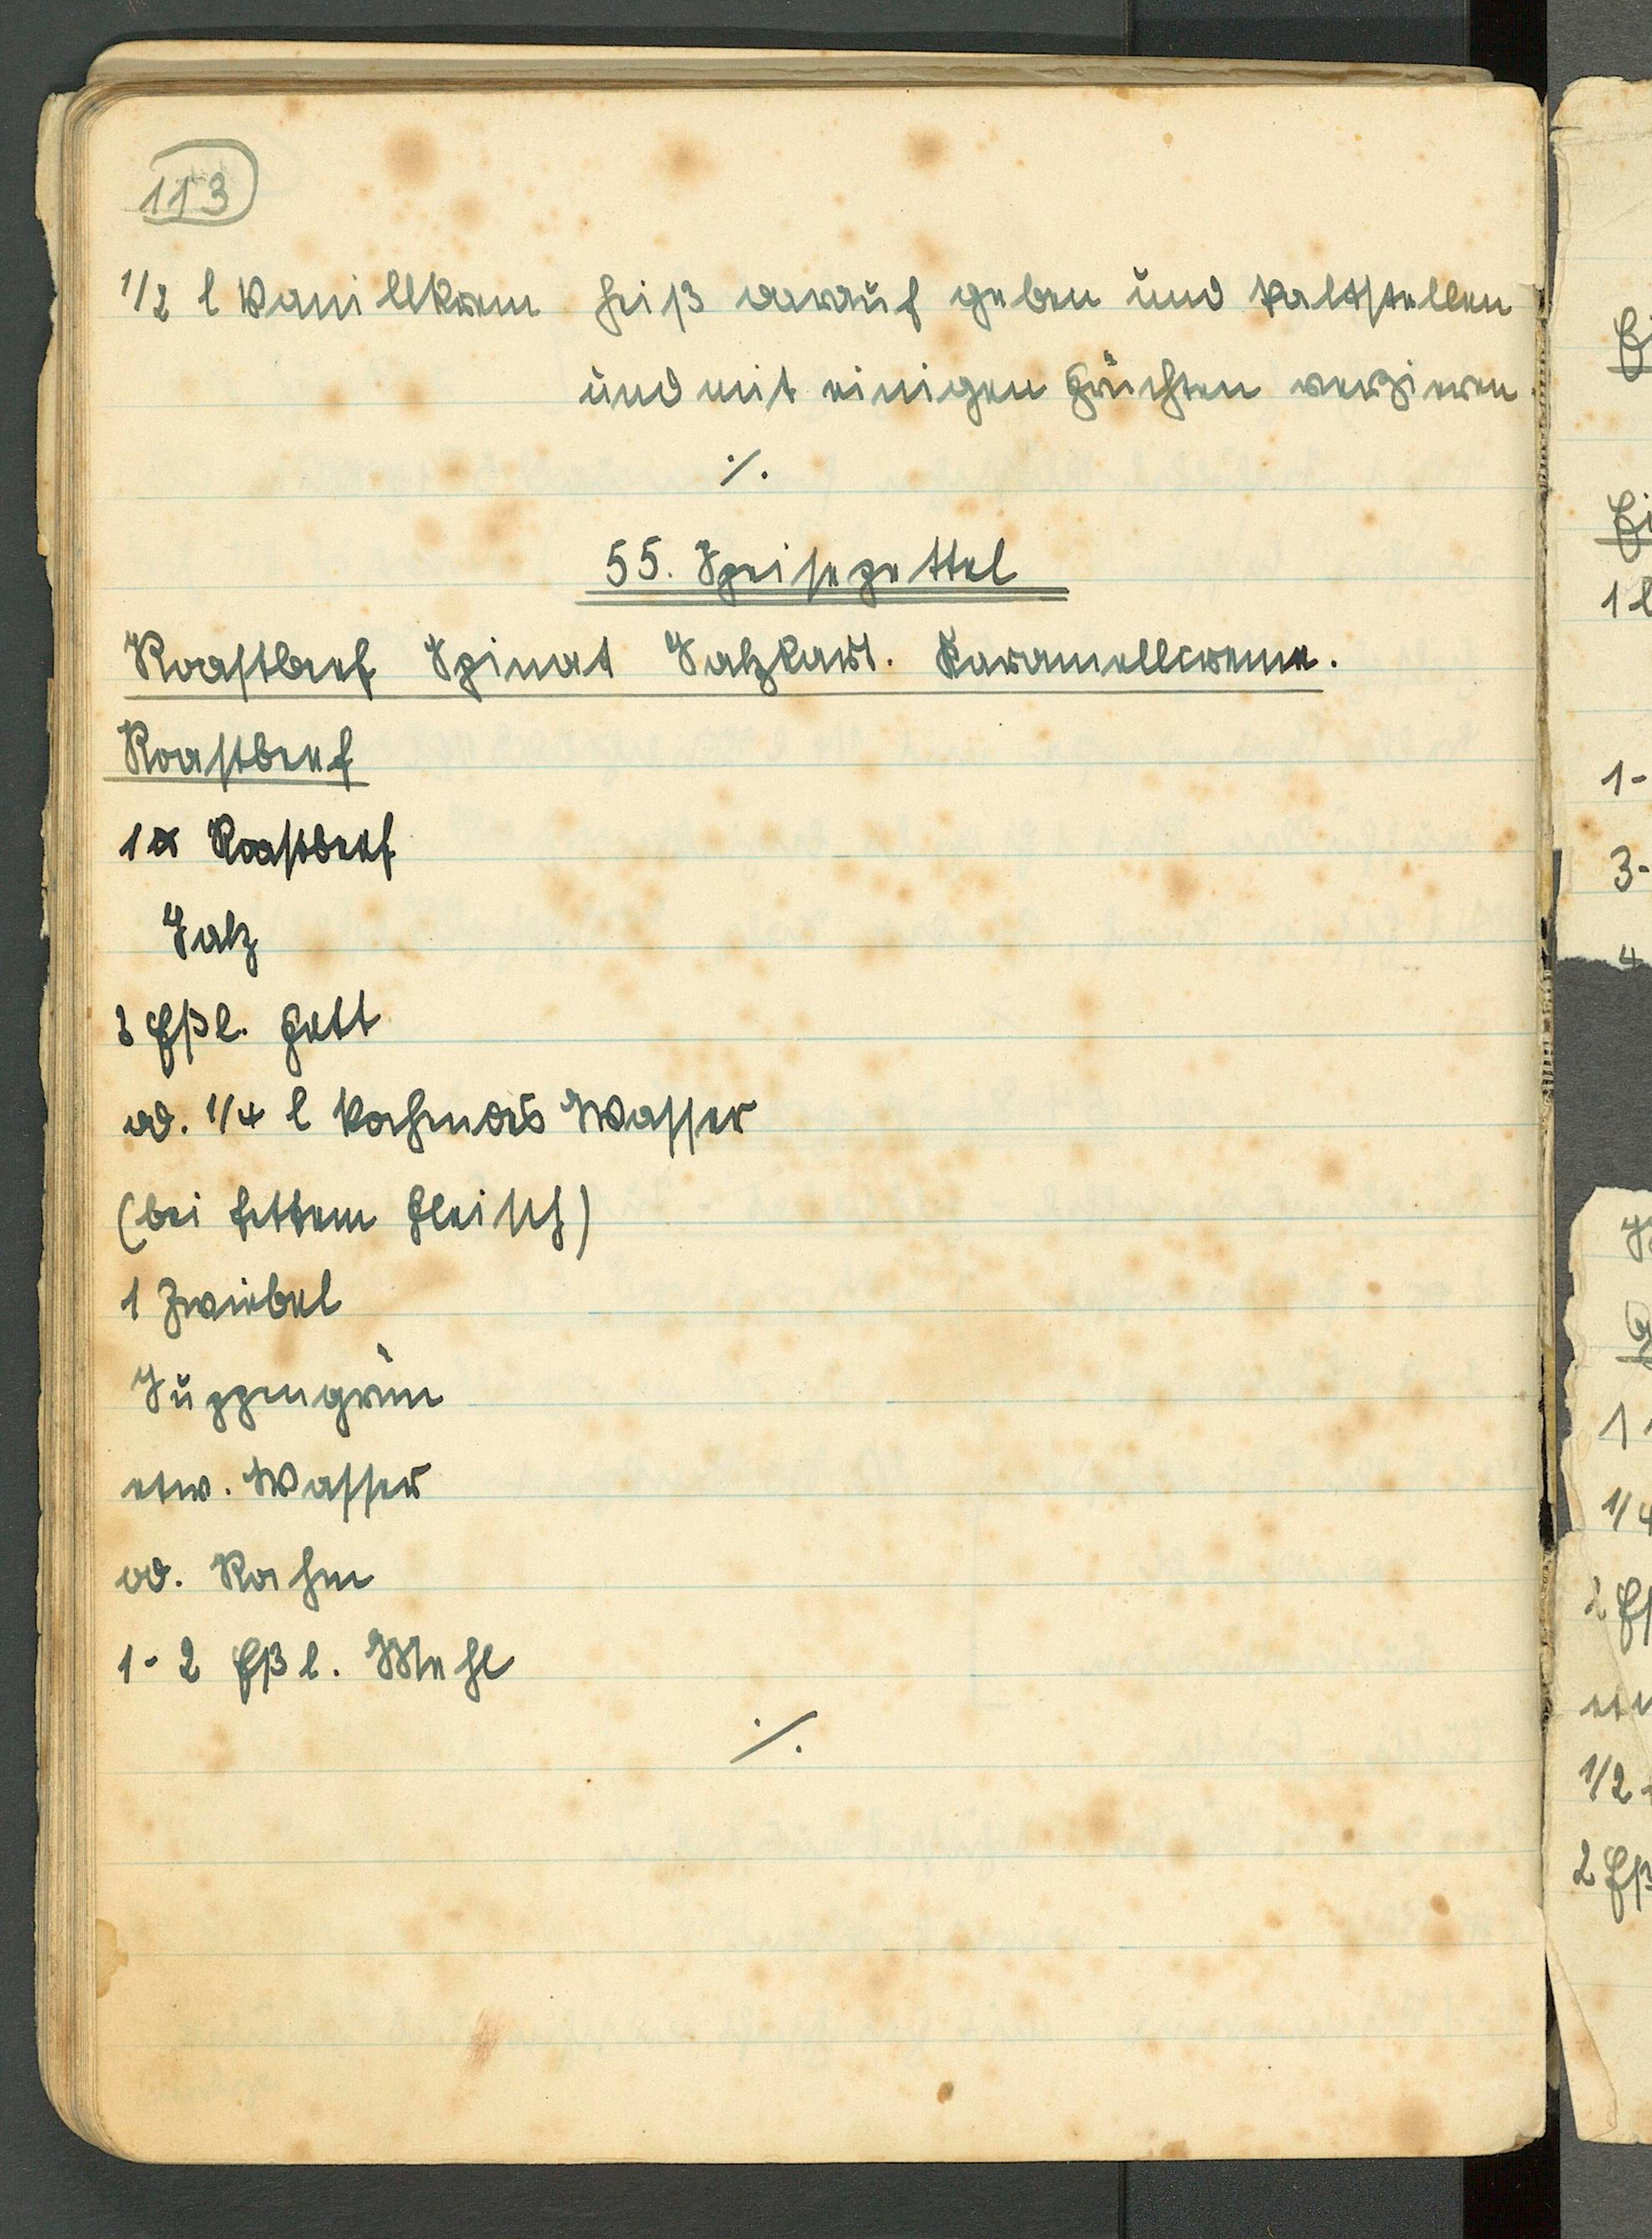 113
1/2 l Vanillkrem heiß darauf geben und kaltstellen
und mit einigen Früchten verzieren.
./.
55. Speisezettel
Roastbeef Spinat Salzkart. Karamellcreme.
Roastbeef
1 ℔ Roastbeef
Salz
3 Eßl. Fett
od. 1/4 l kochendes Wasser
(bei fettem Fleisch)
1 Zwiebel
Suppengrün
etw. Wasser
od. Rahm
1-2 Eßl. Mehl
./.
1 l
1-
3-
4
1
1/4
2 Eß
etw
1/2
2 Eß